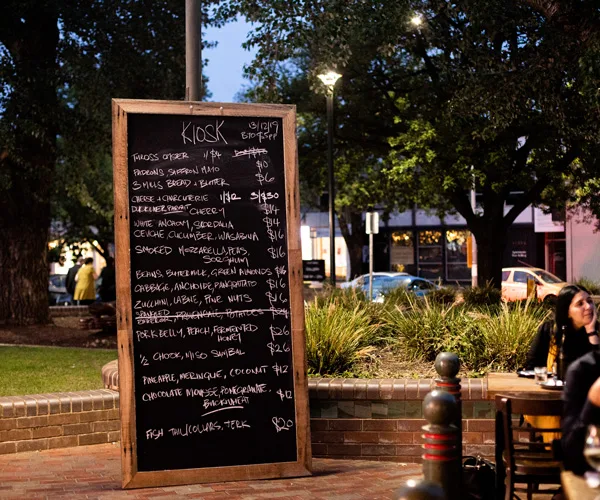 KIOSK
13/12/19
OYSTER 1/$4
PADRONS, SAFFRON MAYO $10
3 MILLS BREAD + BUTTER $6
CHEESE + CHARCUTERIE 1/$12 3/$30
DUCK LIVER PARFAIT CHERRY $14
WHITE ANCHOVY, SKORDALIA $14
CEVICHE CUCUMBER, WASABI $16
SMOKED MOZZARELLA, PEAS, $16
SORGHUM
BEANS, BUTTERMILK, GREEN ALMONDS $16
CABBAGE, ANCHOIDE, PANGRATTATO $16
ZUCCHINI, LABNE, PINE NUTS $16
POTATOES
PORK BELLY, PEACH, FERMENTED $26
HONEY
1/2 CHOOK, MISO SAMBAL $26
PINEAPPLE, MERINGUE, COCONUT $12
CHOCOLATE MOUSSE, POMEGRANATE, $12
BUCKWHEAT
FISH $20